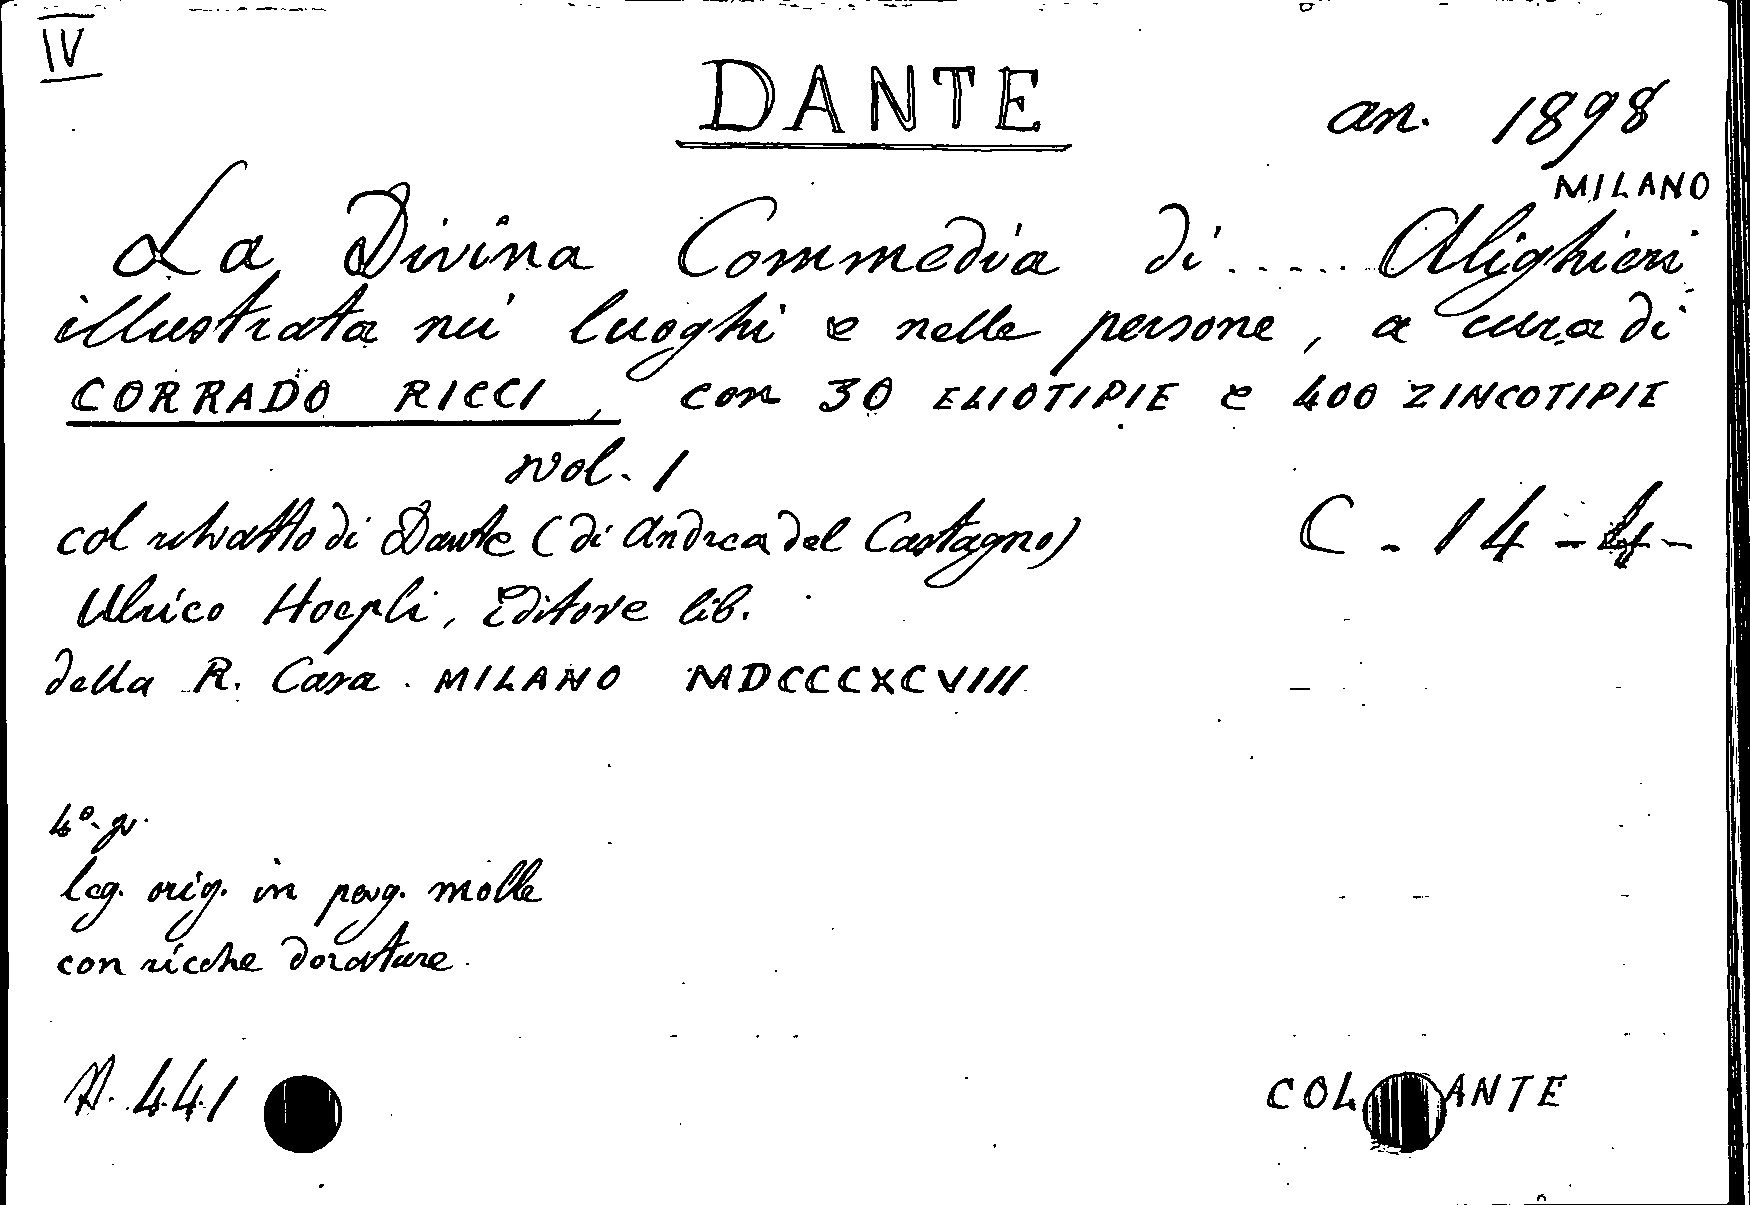 IV
DANTE
an. 1898
MILANO
La Divina Commedia di ..... Alighieri
illustrata nei luoghi e nelle persone, a cura di
CORRADO RICCI, con 30 ELIOTIPIE e 400 ZINCOTIPIE
vol. 1
col ritratto di Dante (di Andrea del Castagno)
C - 14 -
Ulrico Hoepli, Editore lib.
della R. Casa. MILANO MDCCCXCVIII
4º gr.
leg. orig. in perg. molle
con ricche dorature.
N. 441
COL ANTE